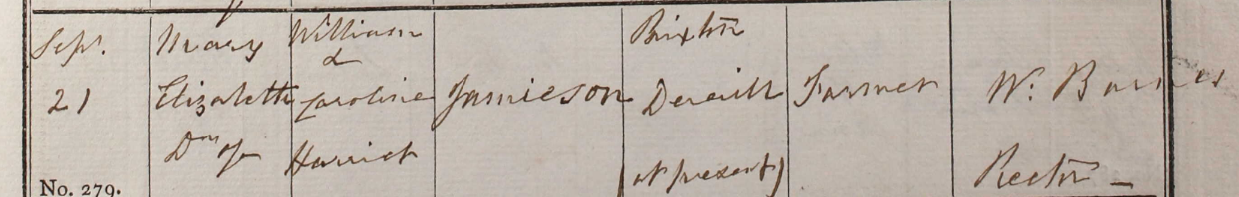 Sept. Mary William Brixton
&
21 Elizabeth Caroline Jamieson Deverill Farmer Wm. Barnes
Dr. of Harriet (at present) Rector
No. 279.